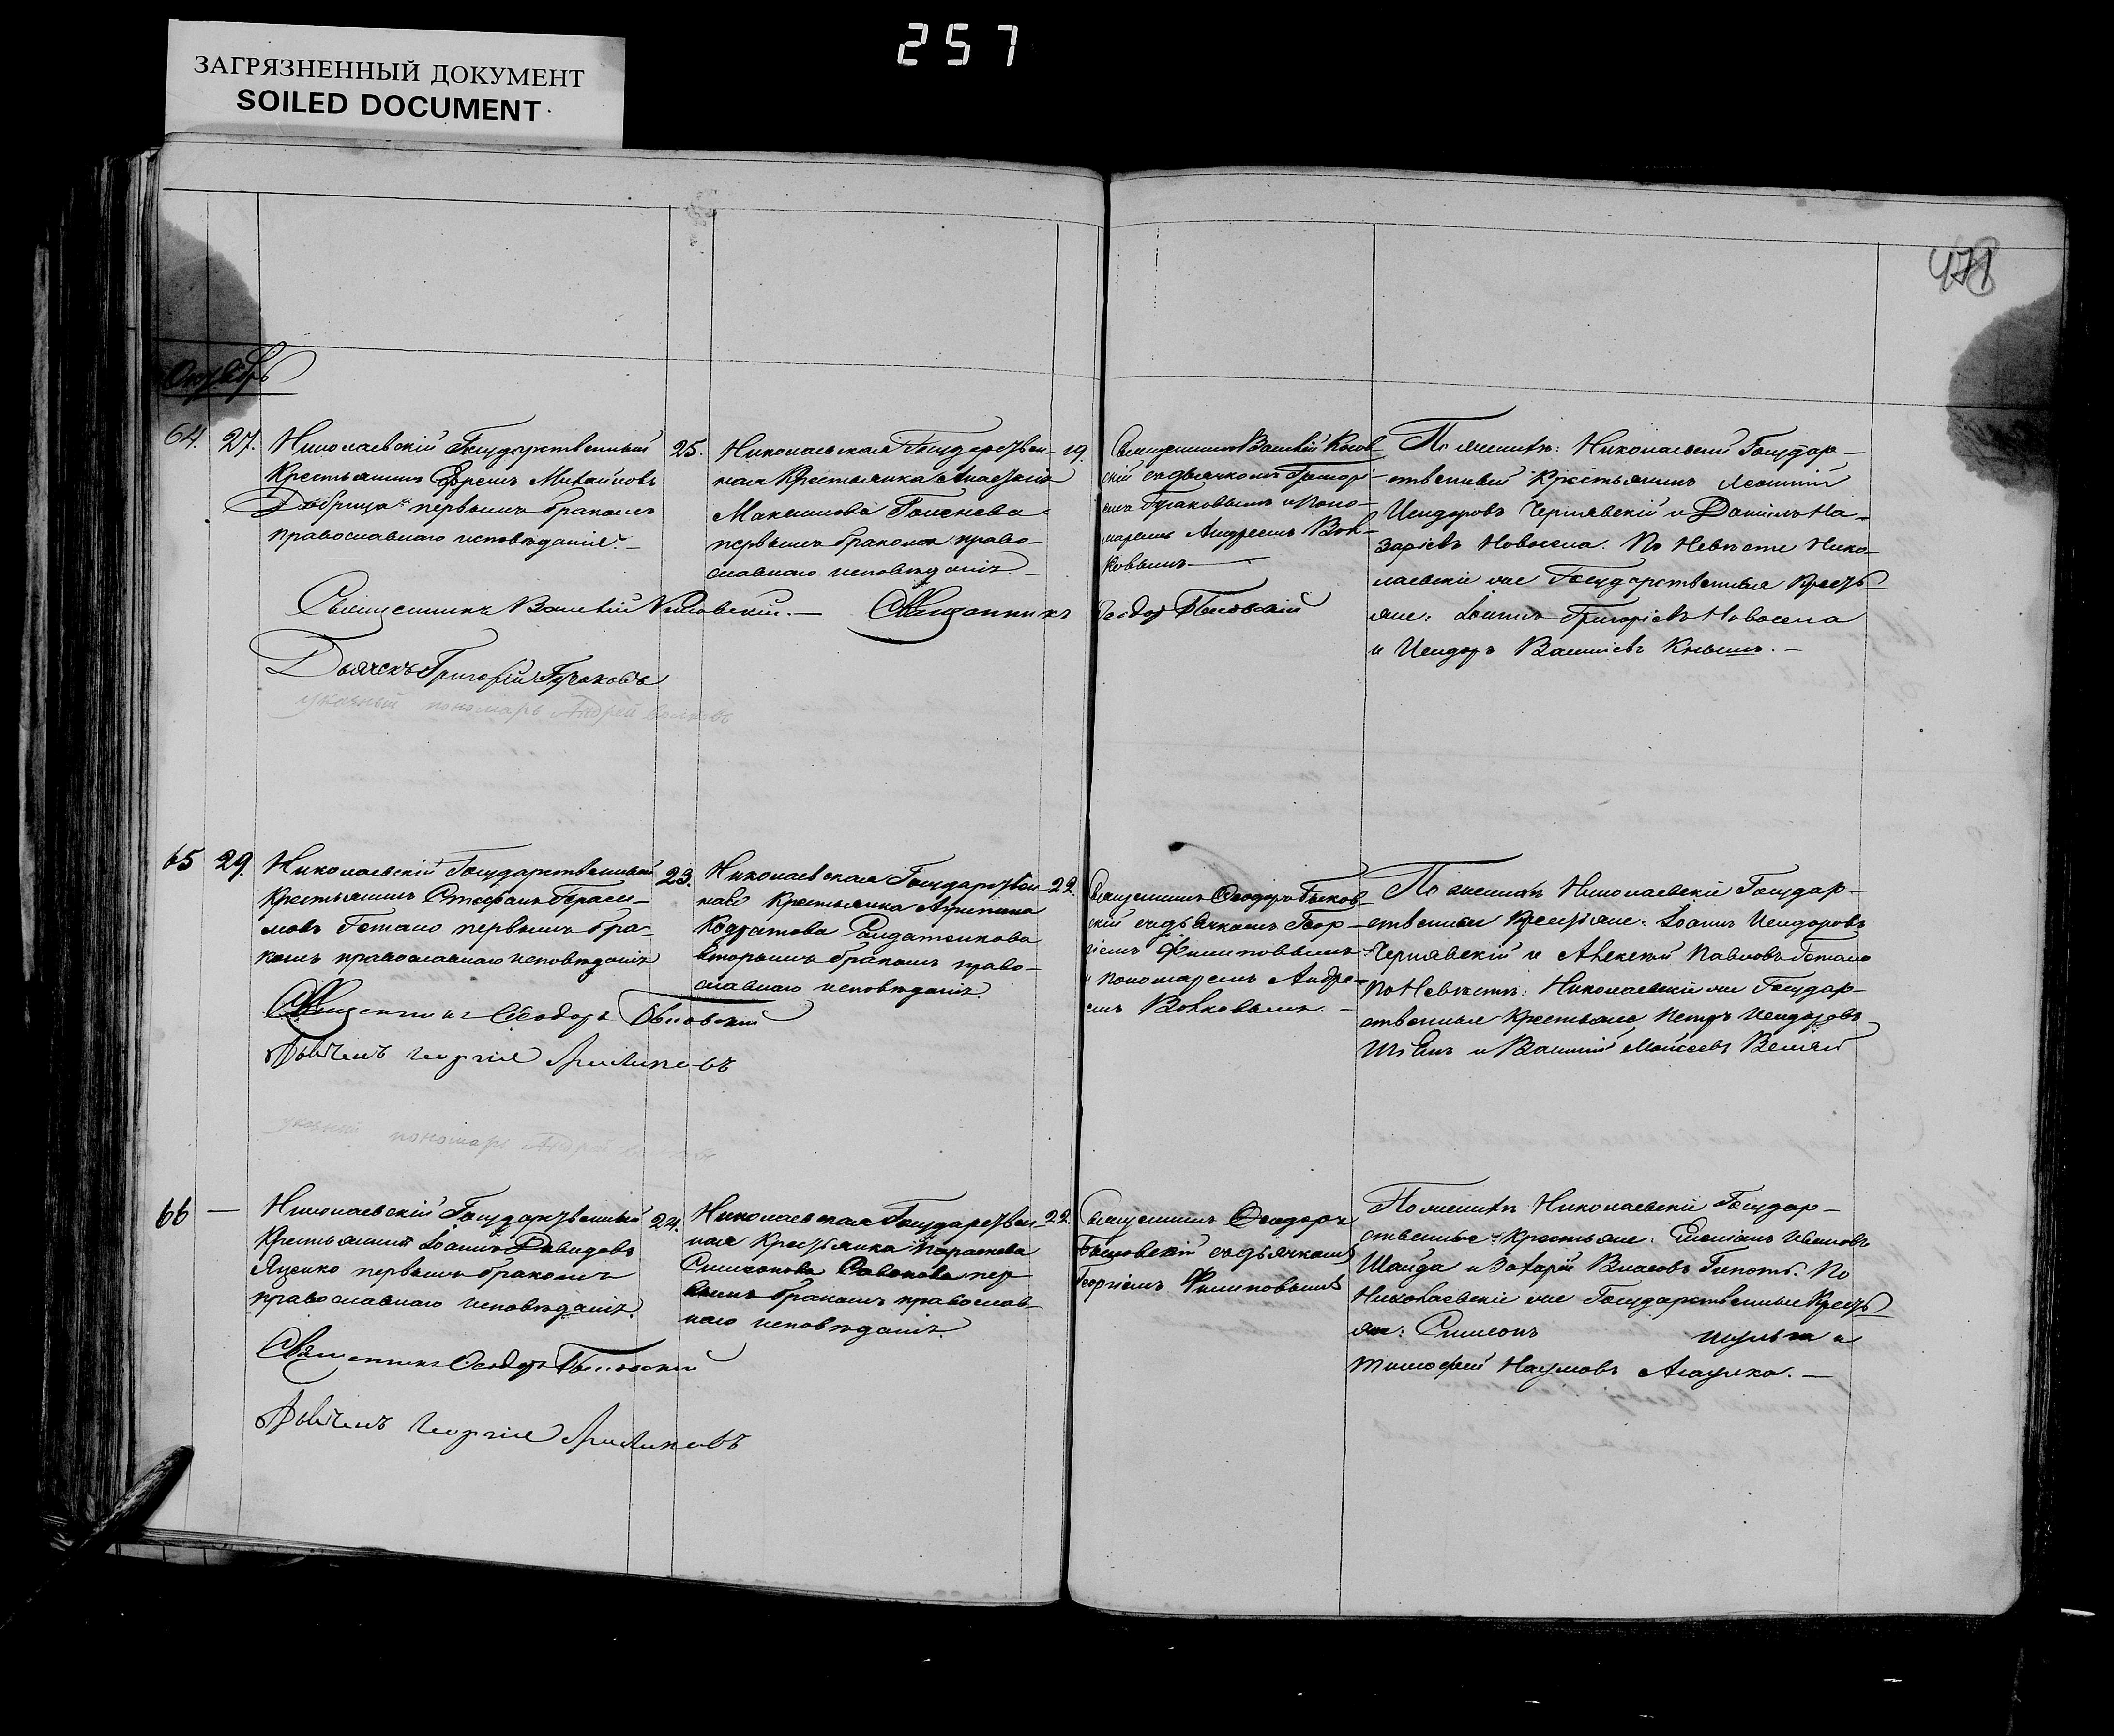 257
ЗАГРЯЗНЕННЫЙ ДОКУМЕНТ
SOILED DOCUMENT
478
Октябрь
64. 27.
Николаевскій Государственный
Крестьянинъ Ефремъ Михайловъ
Добрица первымъ бракомъ
православнаго исповѣданія.
25.
Николаевская Государствен-
ная Крестьянка Анастасія
Максимова
первымъ бракомъ право-
славнаго исповѣданія.
19.
Священникъ Василій
скій съ дьячкомъ Григорі-
емъ Гусаковымъ и поно-
маремъ Андреемъ Вол-
ковымъ
По женихѣ: Николаевскій Государ-
ственный Крестьянинъ Леонтій
Исидоровъ Чернявскій и Даніилъ На-
заріевъ Новосела. По Невѣсте Нико-
лаевскіе же Государственныя Кресть-
яне: Іоаннъ Григоріевъ Новосела
и Исидоръ Василіевъ Книшъ.
Священникъ Василій
Священникъ Ѳеодоръ Быковскій
Дьячекъ Григорій Гусаковъ
указный пономарь Андрей Волковъ
65 29.
Николаевскій Государственный
Крестьянинъ Стефанъ Гераси-
мовъ Гетало первымъ бра-
комъ православнаго исповѣданія
23.
Николаевская Государствен-
ная Крестьянка Агрипина
Кодратова Салдатенкова
вторымъ бракомъ право-
славнаго исповѣданія.
22.
Священникъ Ѳеодоръ Быков-
скій съ дьячкомъ Геор-
гіемъ Филиповымъ
и пономаремъ Андре-
емъ Волковымъ.
По женихѣ Николаевскіе Государ-
ственные Крестьяне: Іоаннъ Исидоровъ
Чернявскій и Алексѣй Павловъ Гетало
По Невѣстѣ: Николаевскіе же Государ-
ственные Крестьяне Петръ Исидоровъ
и Василій Моисеевъ
Священникъ Ѳеодоръ Быковскій
Дьячекъ Георгій Филиповъ
указный пономарь Андрей Волковъ
66 —
Николаевскій Государственный
Крестьянинъ Іоаннъ Давидовъ
Яценко первымъ бракомъ
православнаго исповѣданія.
24.
Николаевская Государствен-
ная Крестьянка Параскева
Симеонова Савенкова пер
вымъ бракомъ православ-
наго исповѣданія.
22.
Священникъ Ѳеодоръ
Быковскій съ дьячкомъ
Георгіемъ Филиповымъ
По женихѣ Николаевскіе Государ-
ственные Крестьяне: Иванов
Шайда и Захарій Власовъ По
Николаевскіе же Государственные Кресть
яне: Симеонъ Шульга и
Тимофей Наумовъ
Священникъ Ѳеодоръ Быковскій
Дьячекъ Георгій Филиповъ